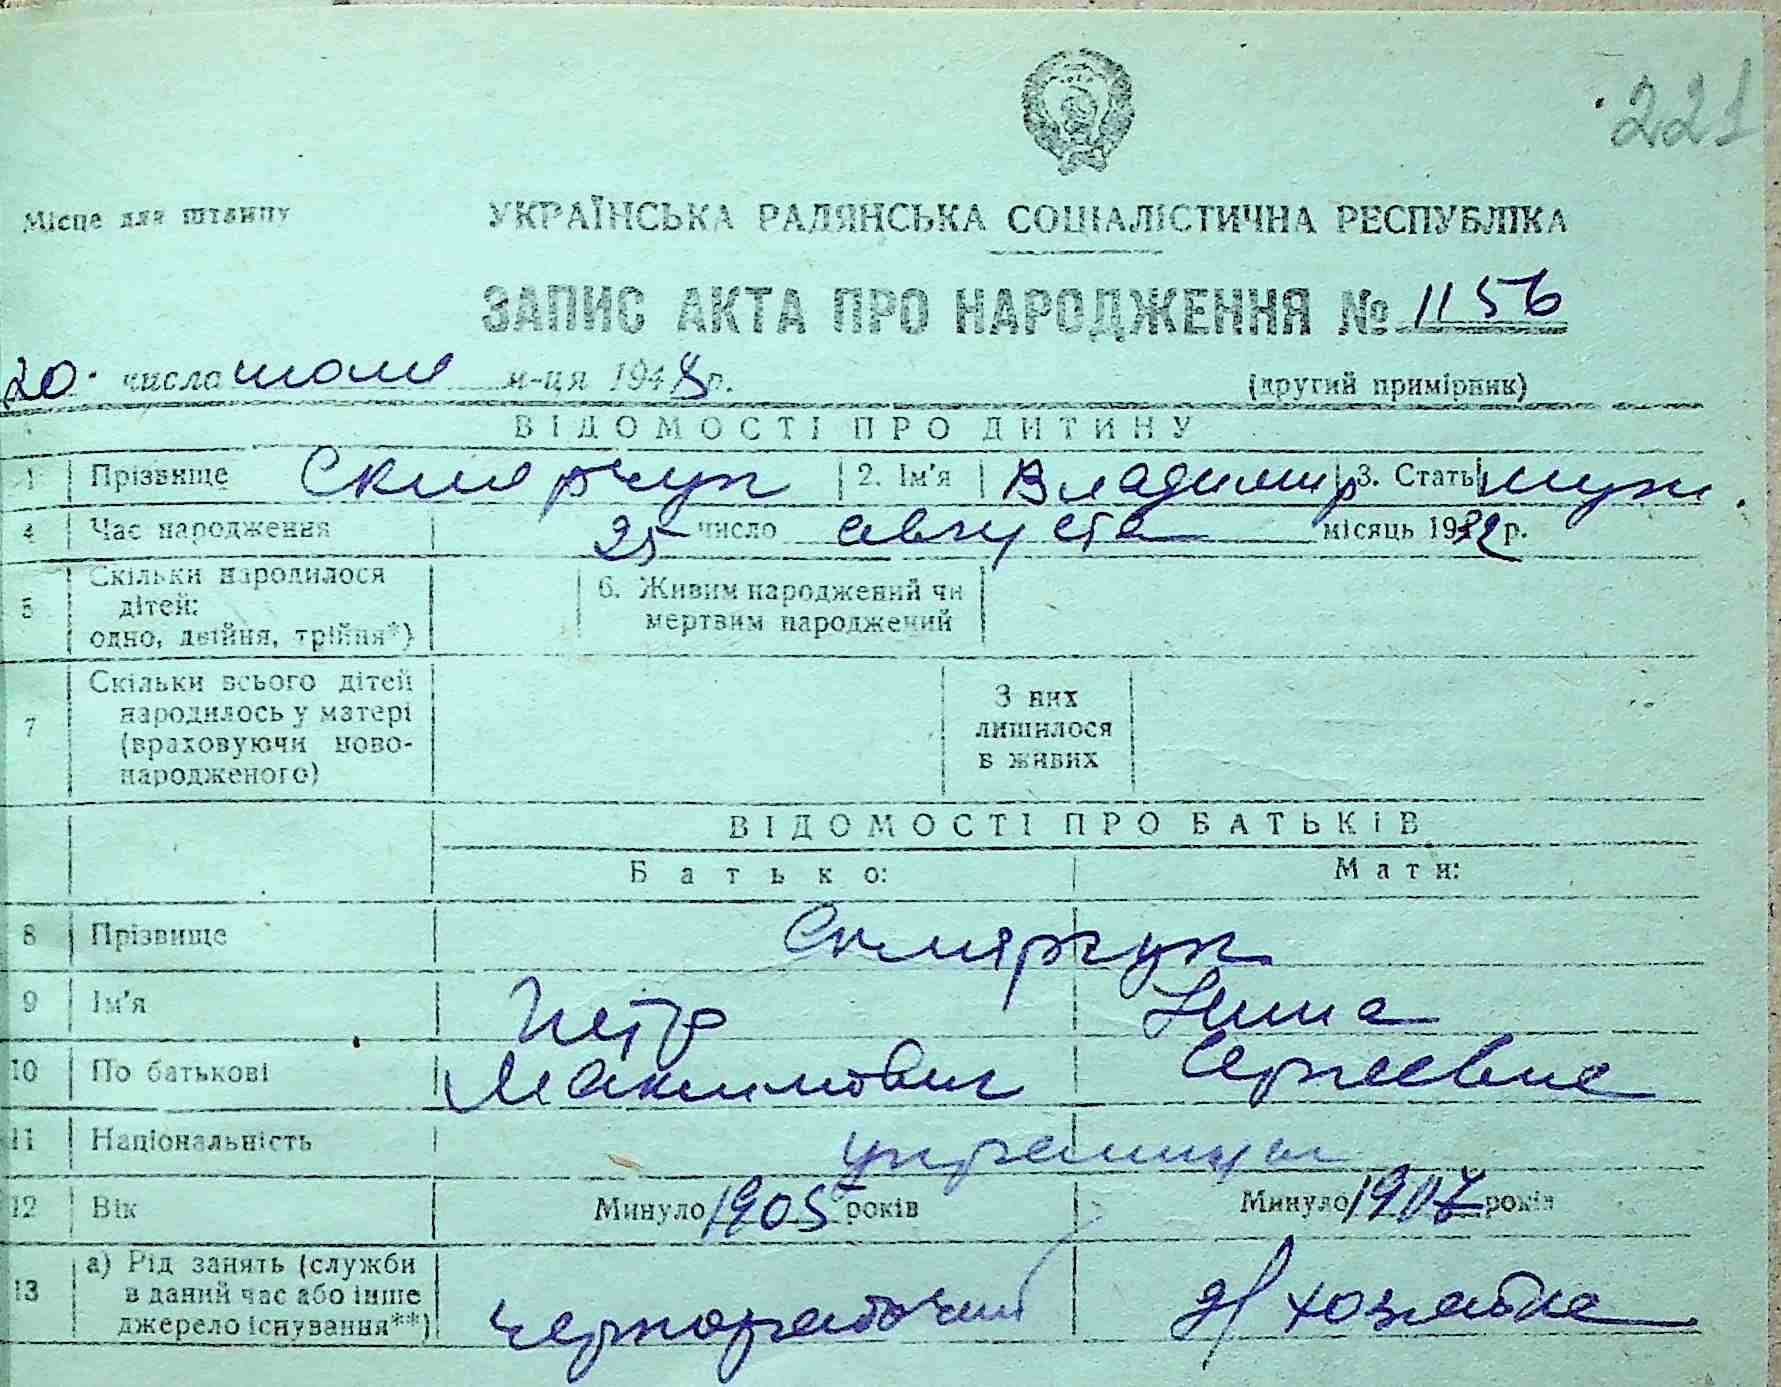 221
Місце для штампу
УКРАЇНСЬКА РАДЯНСЬКА СОЦІАЛІСТИЧНА РЕСПУБЛІКА
ЗАПИС АКТА ПРО НАРОДЖЕННЯ № 1156
20. числа июля м-ця 1948 р. (другий примірник)
ВІДОМОСТІ ПРО ДИТИНУ
1 Прізвище Склярчук 2. Ім'я Владимир 3. Стать муж.
4 Час народження 25 число августа місяць 1932 р.
5 Скільки народилося дітей: одно, двійня, трійня*) 6. Живим народжений чи мертвим народжений
7 Скільки всього дітей народилось у матері (враховуючи ново-народженого) З них лишилося в живих
ВІДОМОСТІ ПРО БАТЬКІВ
Батько: Мати:
8 Прізвище Склярчук
9 Ім'я Петр Нина
10 По батькові Максимович Сергеевна
11 Національність украинцы
12 Вік Минуло 1905 років Минуло 1907 років
13 а) Рід занять (служби в даний час або інше джерело існування**) чернорабочий д/хозяйка